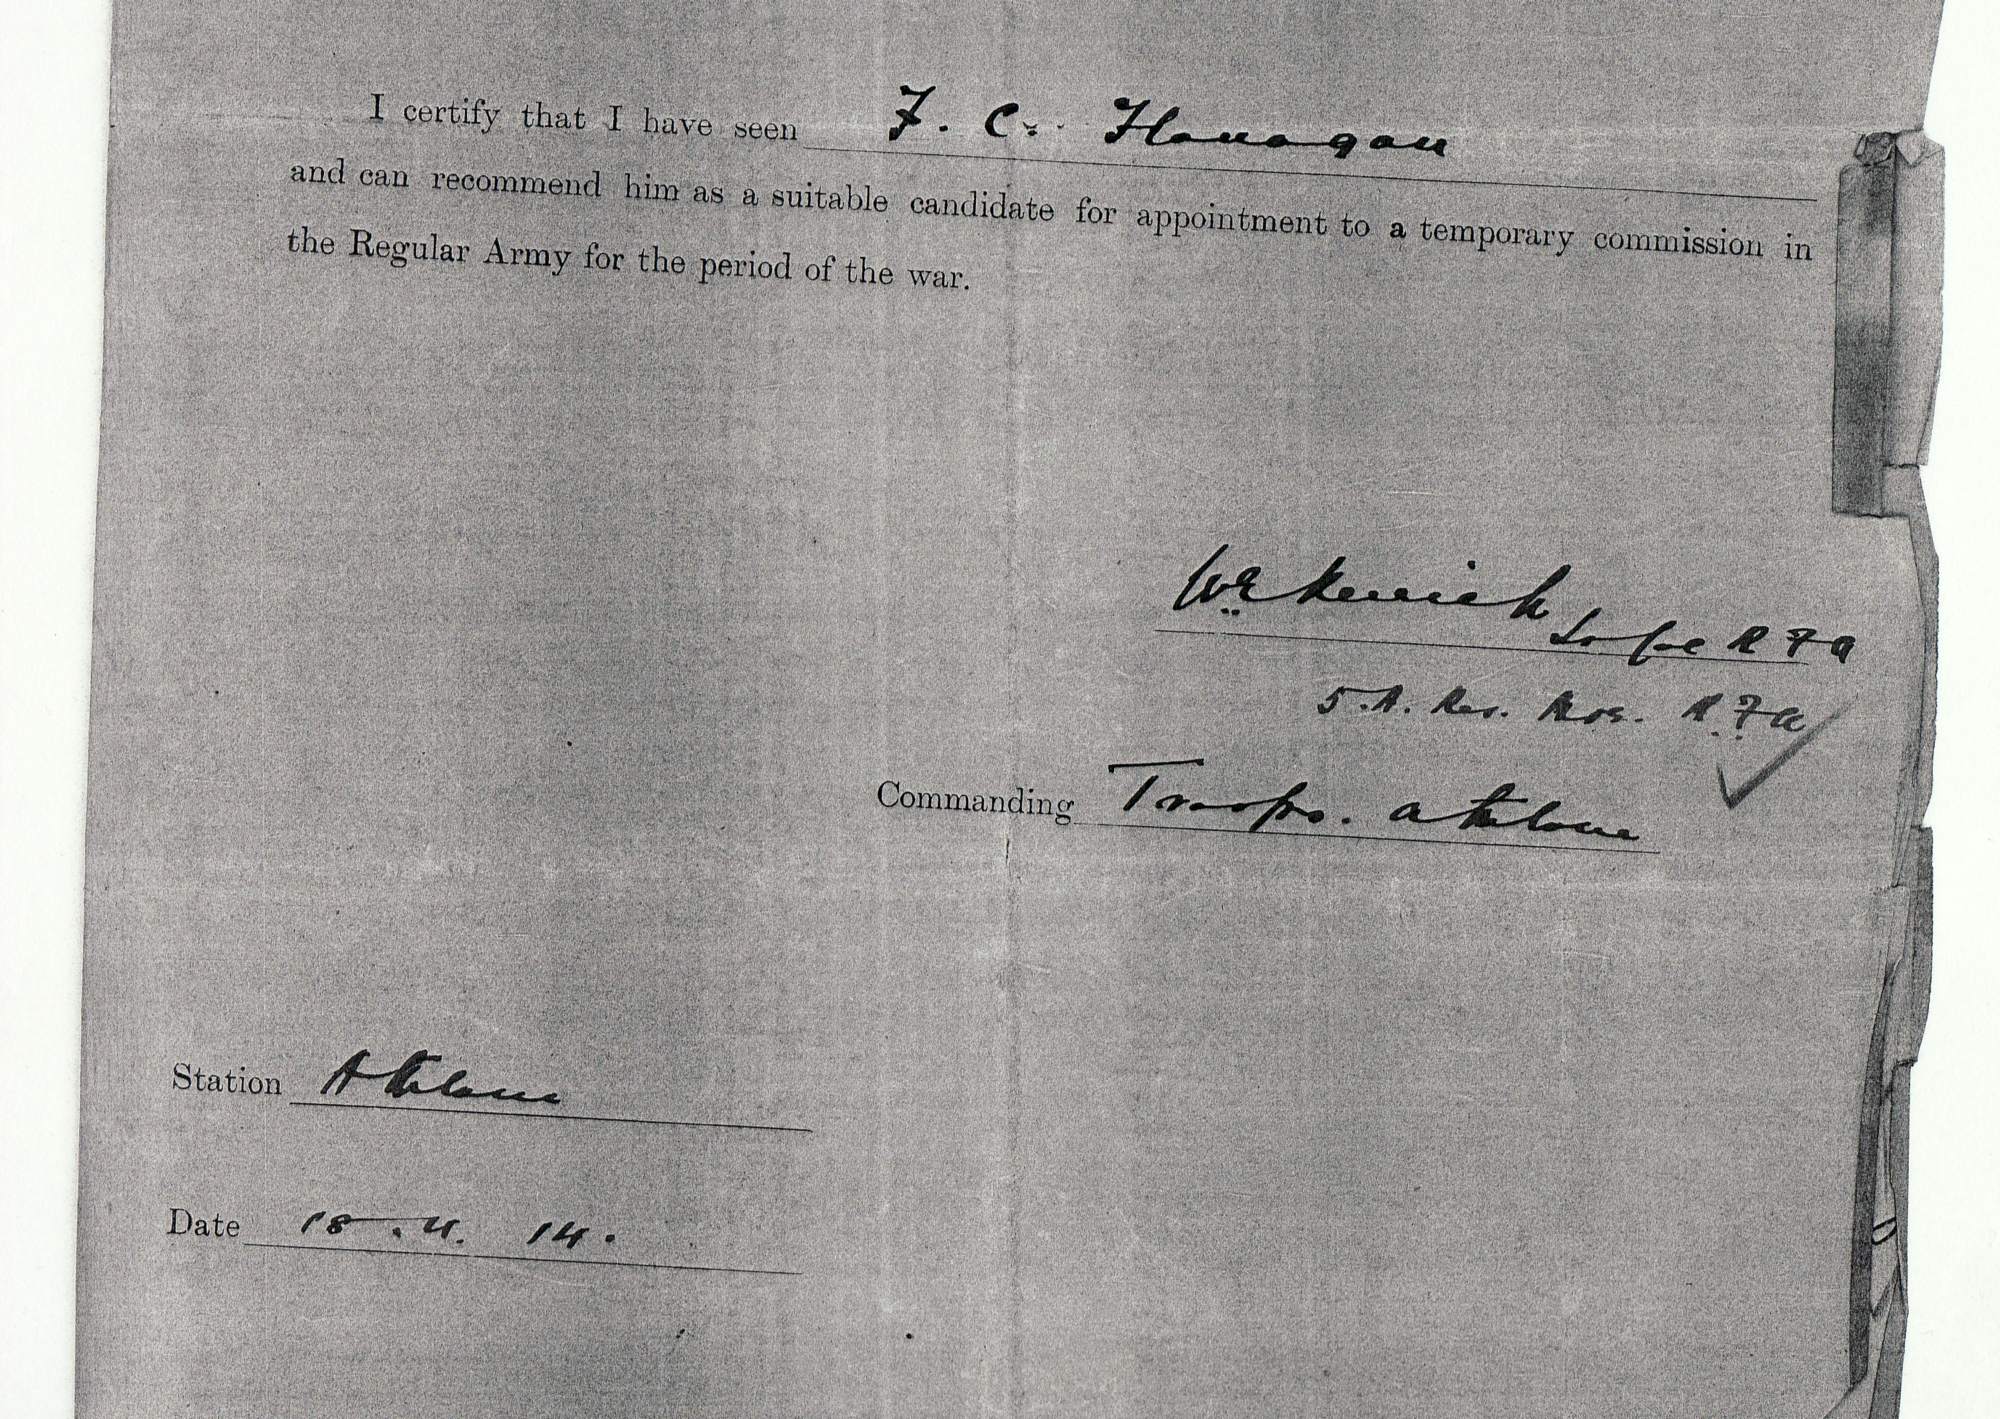 I certify that I have seen F. C. Flanagan
and can recommend him as a suitable candidate for appointment to a temporary commission in
the Regular Army for the period of the war.
R F A
5.A. Res. R.F.A
Commanding Troops. Athlone
Station Athlone
Date 18.11.14.